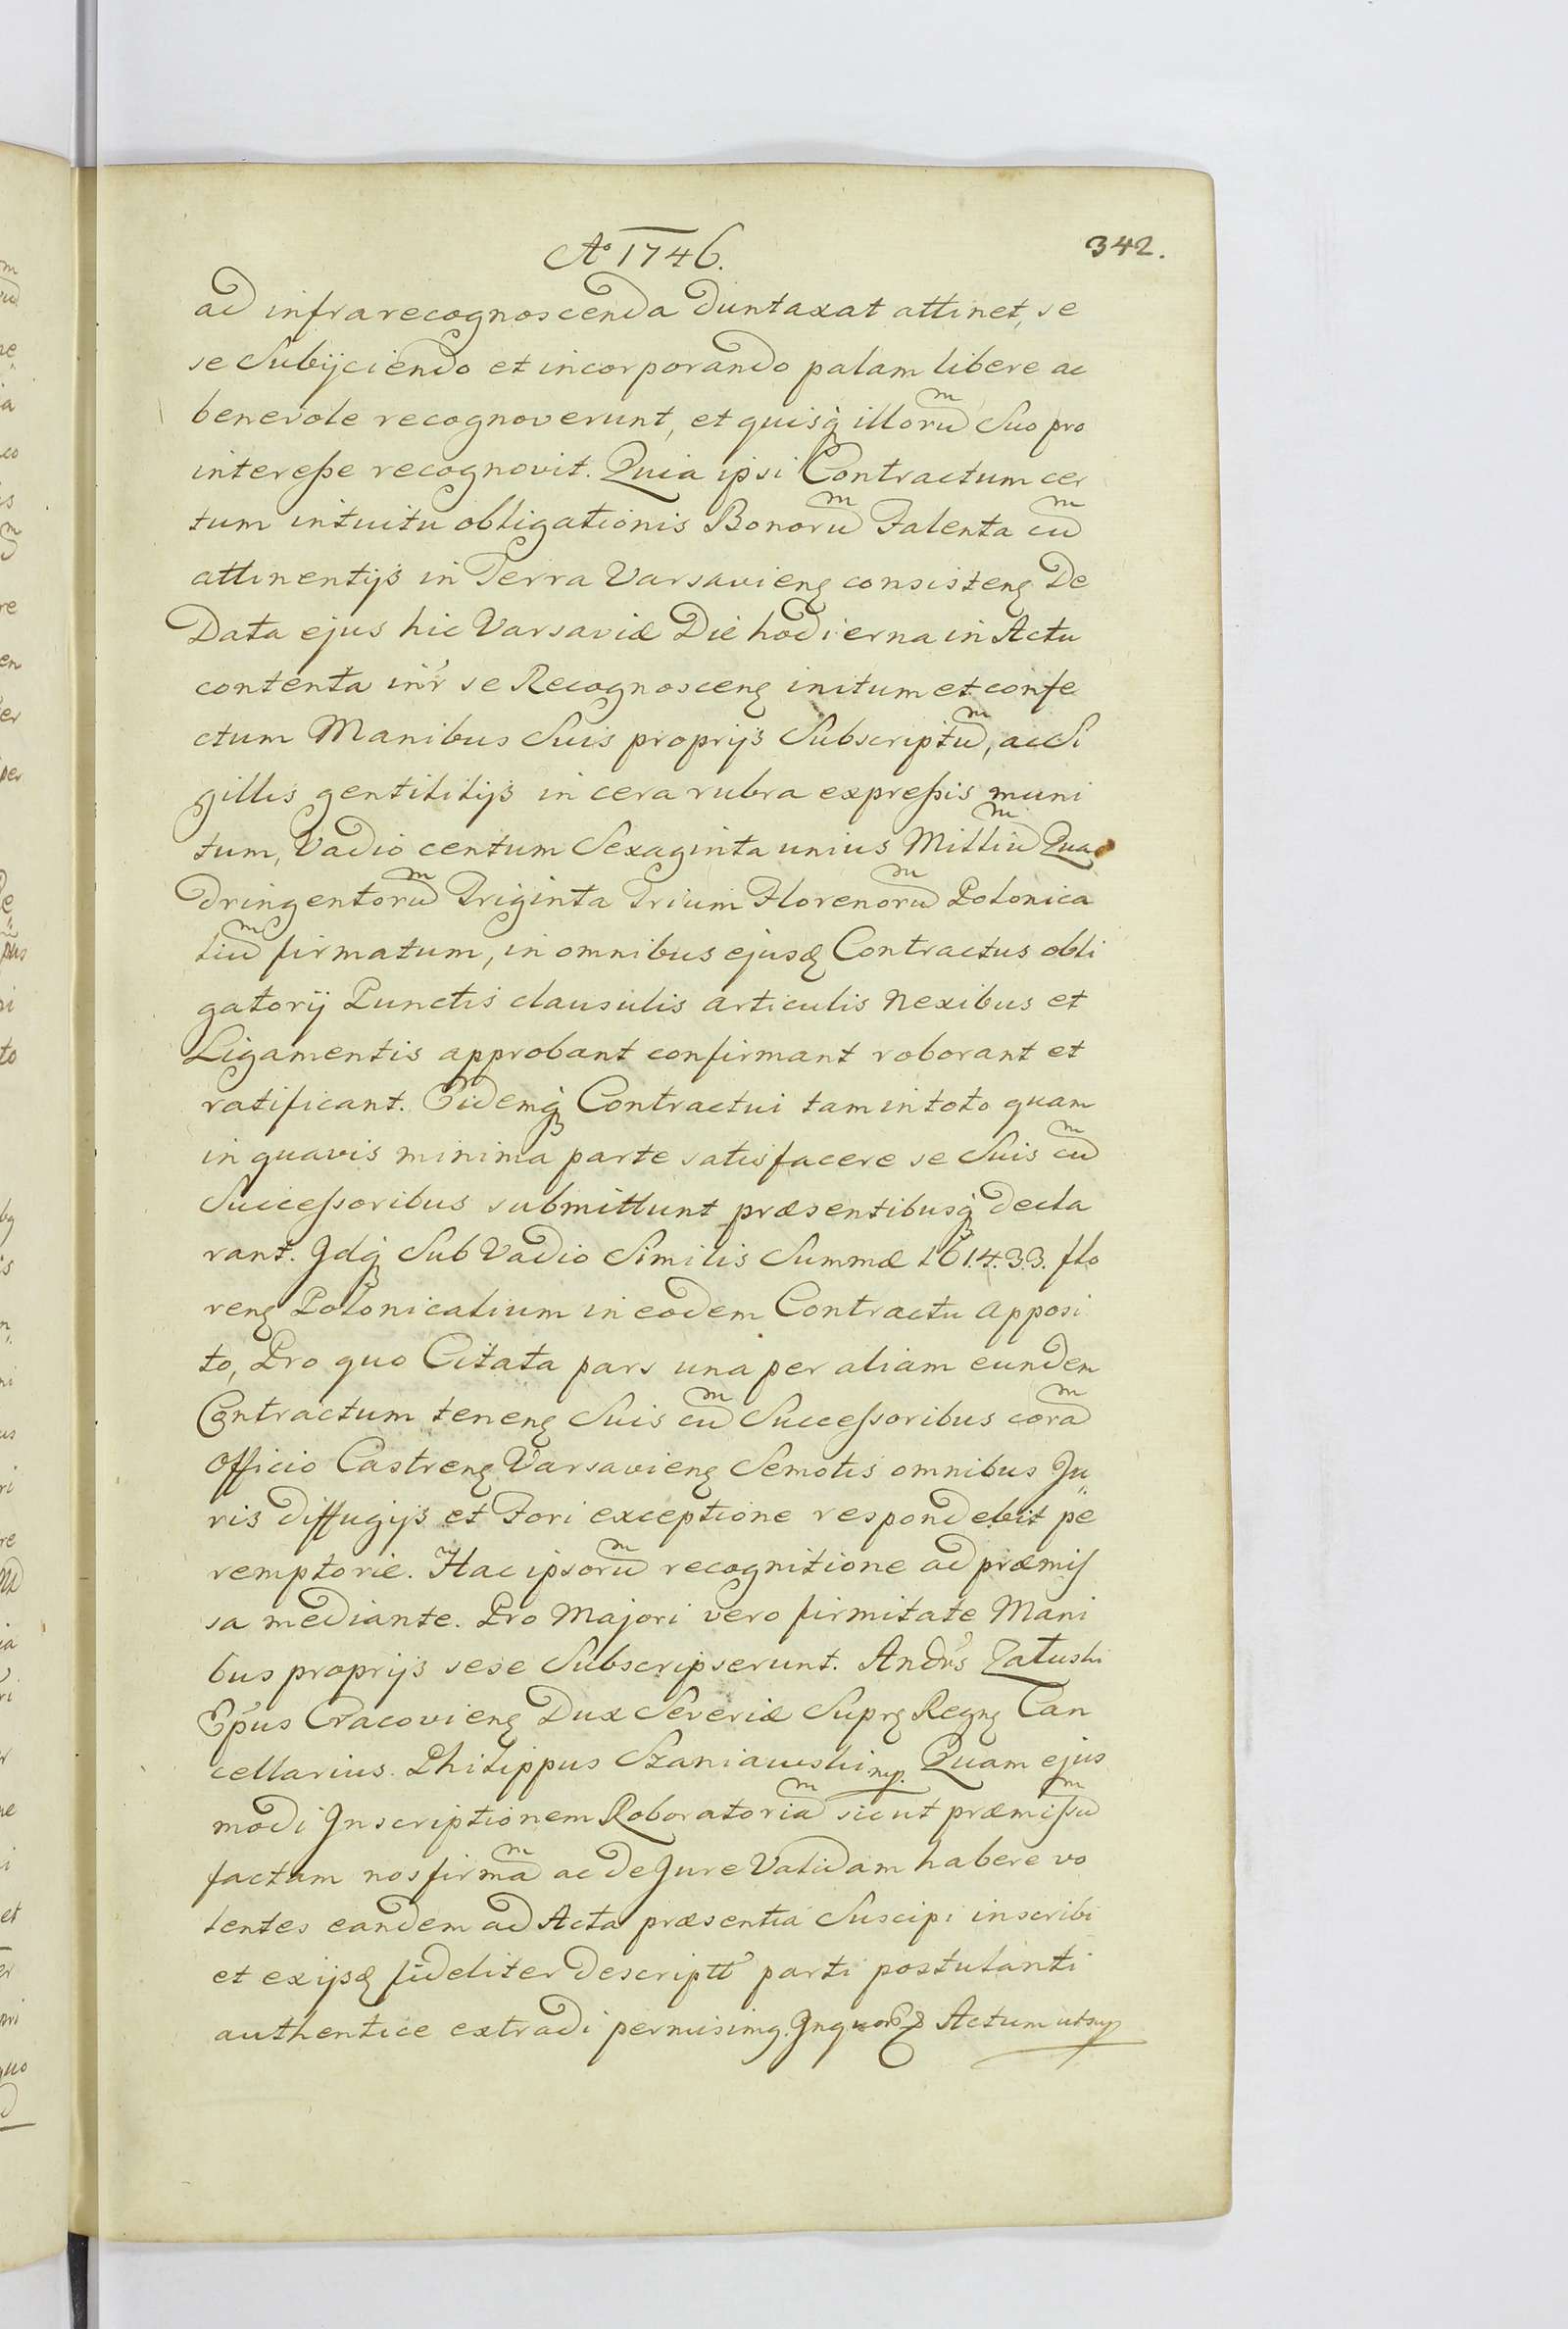 Aº 1746.
342.
ad infrarecognoscenda duntaxat attinet, se
se Subijciendo et incorporando palam libere ac
benevole recognoverunt, et quisq illorum Suo pro
interesse recognovit. Quia ipsi Contractum cer
tum intuitu obligationis Bonorum Falenta cum
attinentijs in Terra Varsavieng consisteng De
Data ejus hic Varsaviæ Die hodierna in Actu
contenta intr se Recognosceng initum et confe
ctum Manibus Suis proprijs Subscriptum, ac Si
gillis gentilitijs in cera rubra expressis muni
tum, Vadio centum Sexaginta unius Millium Qua
dringentorum Triginta Trium Florenorum Polonica
lium firmatum, in omnibus ejusq Contractus obli
gatorij Punctis clausulis articulis nexibus et
Ligamentis approbant confirmant roborant et
ratificant. Eidemq Contractui tam in toto quam
in quavis minima parte satisfacere se Suis cum
Successoribus submittunt præsentibusq decla
rant. Idq Sub Vadio Similis Summæ 161.4.3.3. flo
reng Polonicalium in eodem Contractu apposi
to, Pro quo Citata pars una per aliam eundem
Contractum teneng Suis cum Successoribus coram
Officio Castreng Varsavieng Semotis omnibus Ju
ris diffugijs et Fori exceptione respondebit pe
remptorie. Hac ipsorum recognitione ad præmis
sa mediante. Pro Majori vero firmitate Mani
bus proprijs sese Subscripserunt. Andrs Załuski
Epus Cracovieng Dux Severiæ Suprg Regng Can
cellarius. Philippus Szaniawski mp. Quam ejus
modi Inscriptionem Roboratoriam sicut præmissum
factam nos firmam ac de Jure Validam habere vo
lentes eandem ad Acta præsentia Suscipi inscribi
et ex ijsq fideliter descriptt parti postulanti
authentice extradi permisimg. Actum utsup